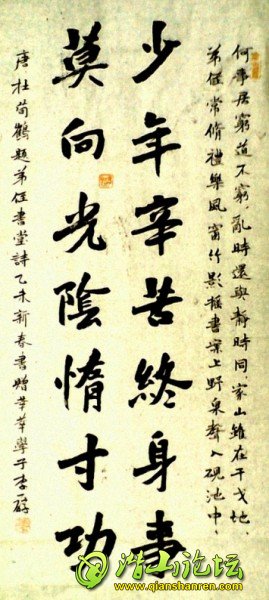 何事居窮道不窮、亂時還與靜時同、家山雖在干戈地、
弟侄常脩禮樂風、窗竹影摇書案上、野泉聲入硯池中、
少年辛苦終身事
莫向光陰惰寸功
唐杜荀鶴題弟侄書堂詩乙未新春書贈莘莘學子李
潜山论坛
www.qianshanren.com